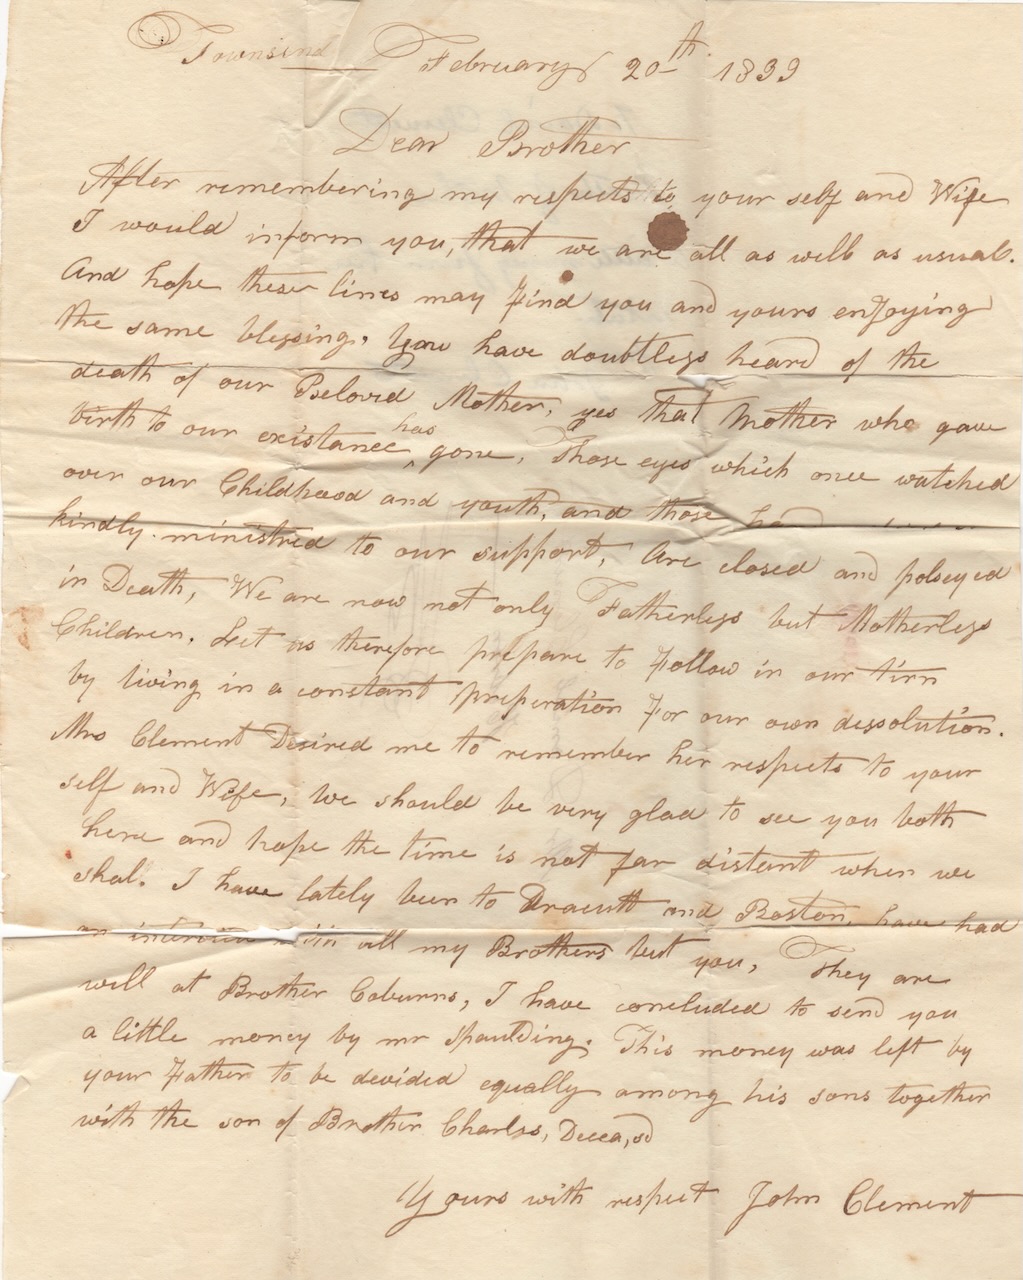 Townsend February 20th 1839
Dear Brother
After remembering my respects to your self and Wife
I would inform you, that we are all as well as usual.
And hope these lines may find you and yours enJoying
the same blessing. You have doubtless heard of the
death of our Beloved Mother, yes that Mother who gave
birth to our existance has gone, Those eyes which once watched
over our Childhood and youth, and those
kindly ministred to our support, Are closed and polseyed
in Death, We are now not only Fatherless but Motherless
Children. Let us therefore prepare to Follow in our tirn
by living in a constant preperation For our own dessolution.
Mrs Clement Desired me to remember her respects to your
self and Wife, We should be very glad to see you both
here and hope the time is not far distant when we
shal. I have lately been to Dracutt and Boston, have had
an interview with all my Brothers but you, They are
well at Brother Coburns, I have concluded to send you
a little money by mr Spaulding. This money was left by
your Father to be devided equally among his sons together
with the son of Brother Charles, Decea,sd
Yours with respect John Clement